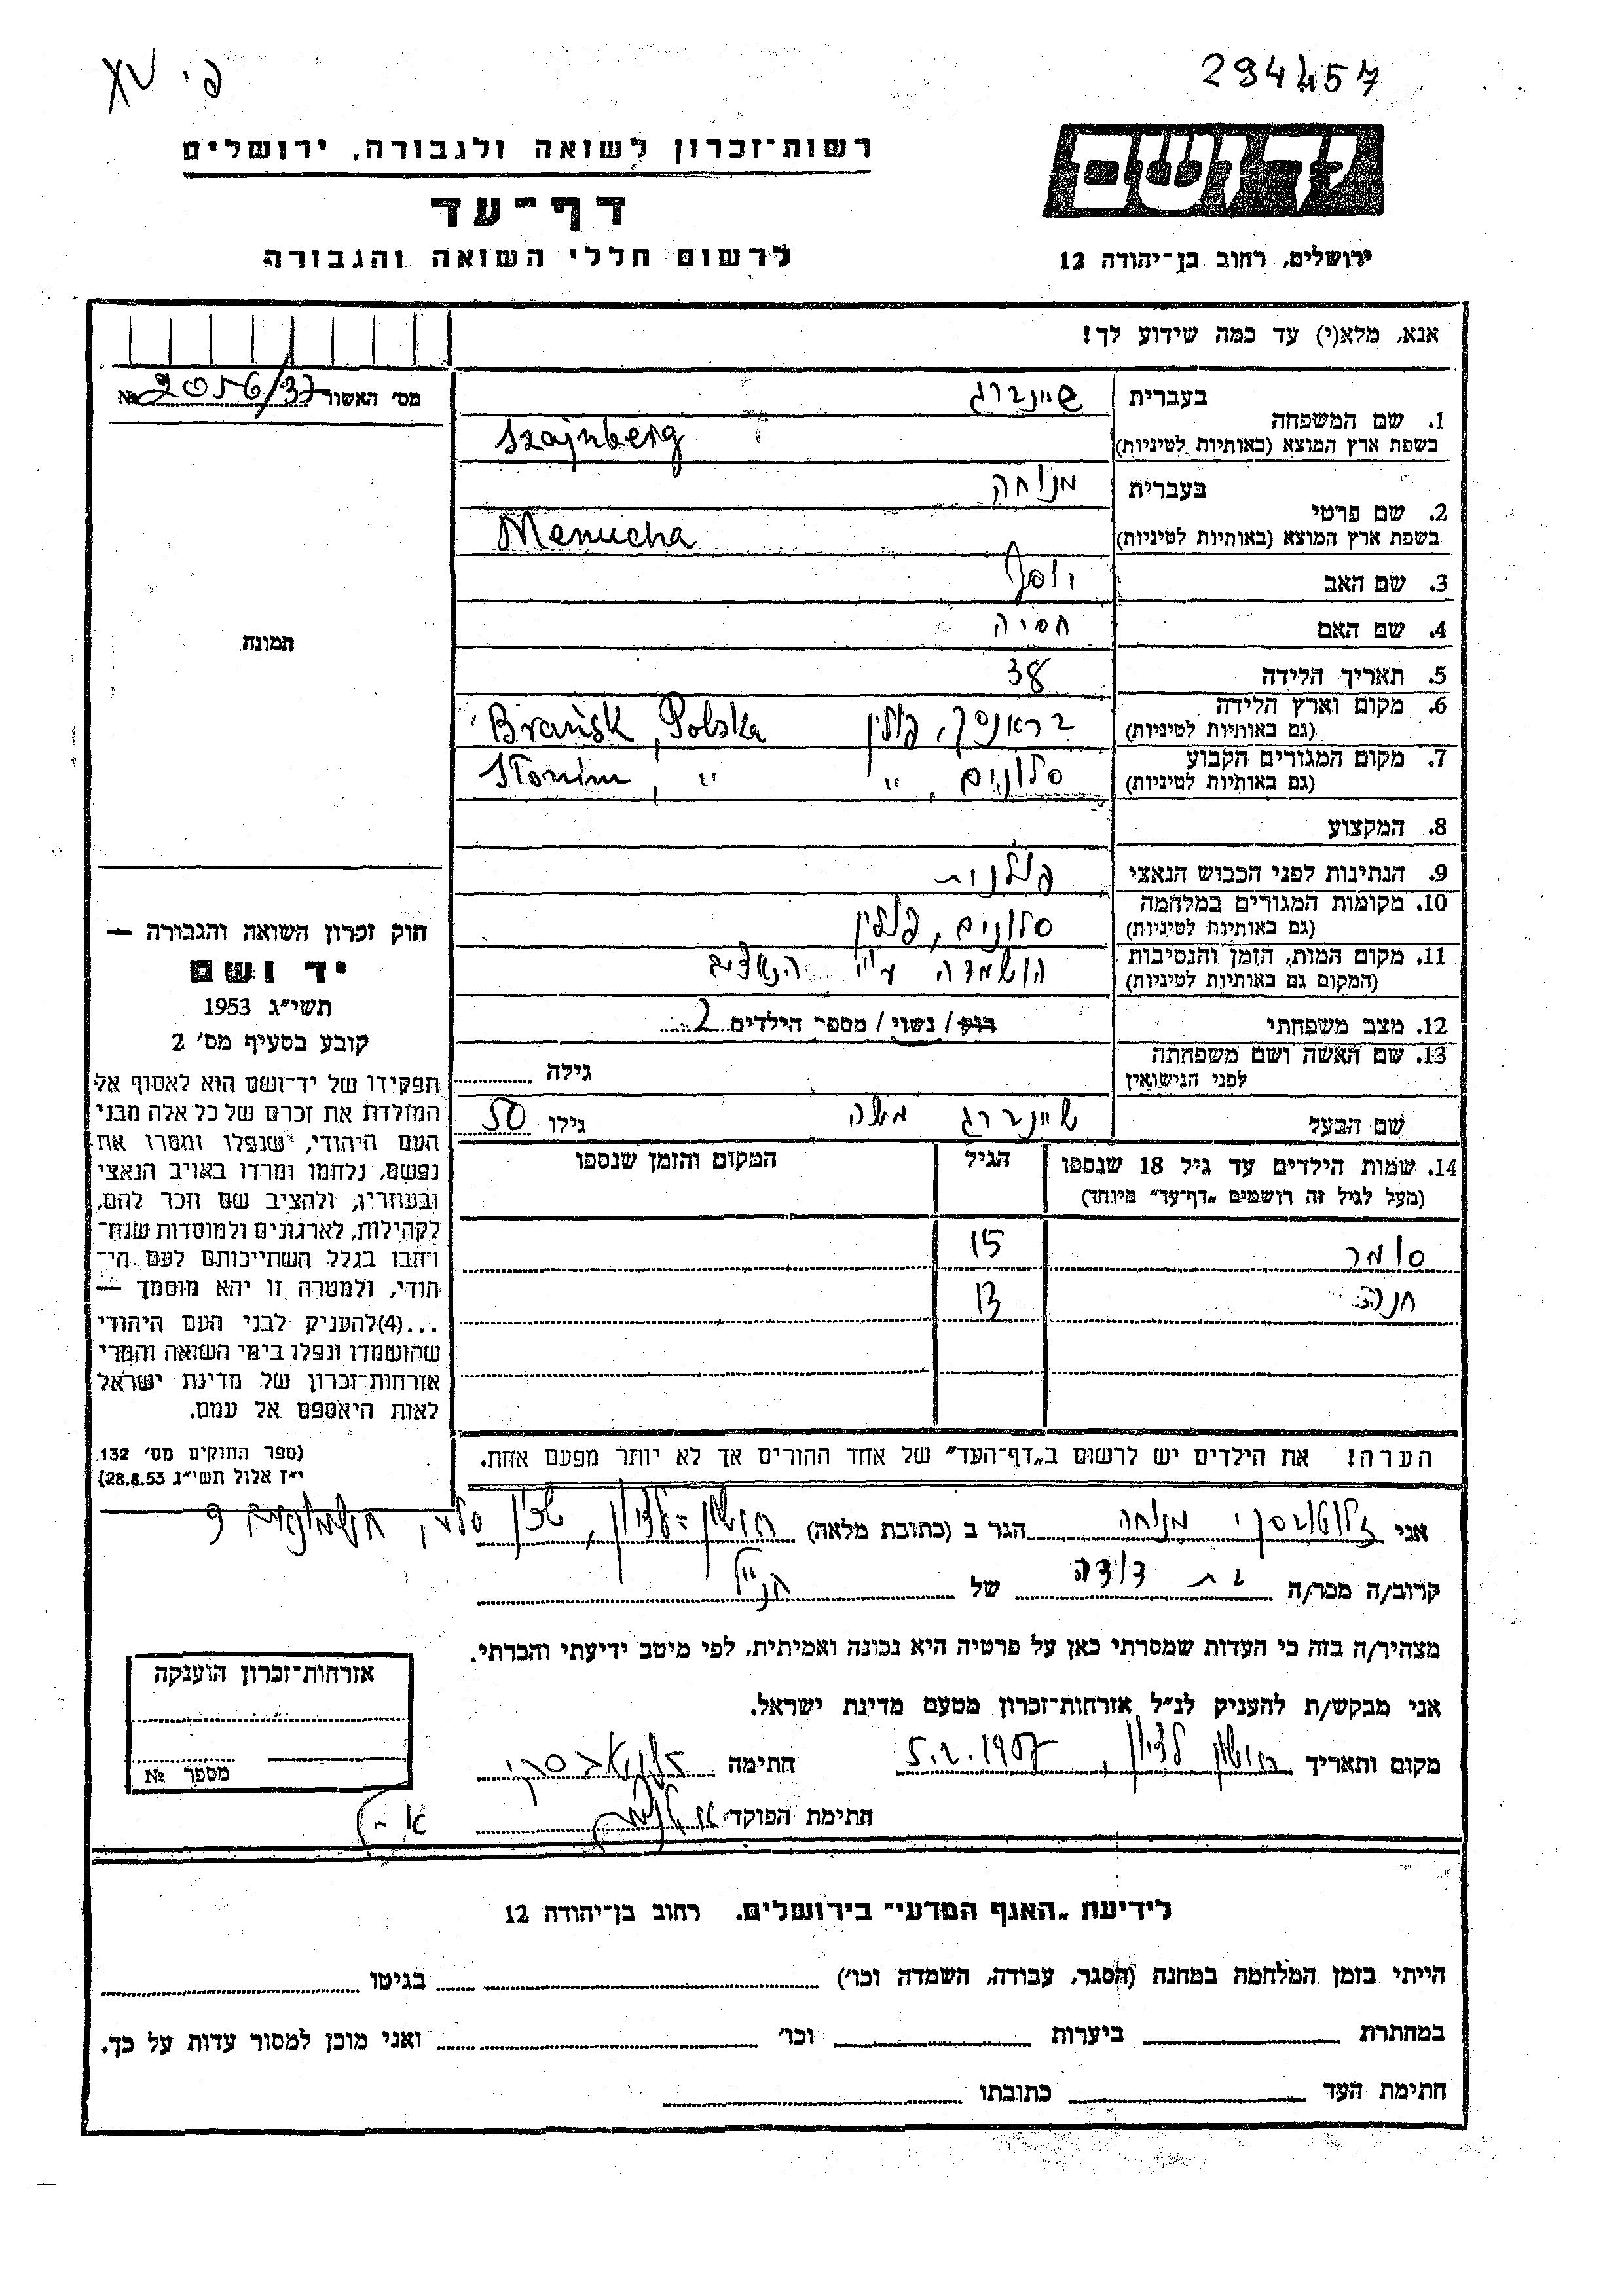 פי XV
294457
רשות־זכרון לשואה ולגבורה, ירושלים
דף־עד
לרשום חללי השואה והגבורה
ידושם
ירושלים, רחוב בן־יהודה 12
אנא, מלא(י) עד כמה שידוע לך!
מס׳ האשור № 2056/37
1. שם המשפחה בעברית שיינברג
בשפת ארץ המוצא (באותיות לטיניות) Szajnberg
2. שם פרטי בעברית מנוחה
בשפת ארץ המוצא (באותיות לטיניות) Menucha
3. שם האב יוסף
4. שם האם חסיה
5. תאריך הלידה 38
6. מקום וארץ הלידה (גם באותיות לטיניות) בראנסק, פולין Brańsk, Polska
7. מקום המגורים הקבוע (גם באותיות לטיניות) סלונים, " Słonim, "
8. המקצוע
9. הנתינות לפני הכבוש הנאצי פולנית
10. מקומות המגורים במלחמה (גם באותיות לטיניות) סלונים, פולין
11. מקום המות, הזמן והנסיבות (המקום גם באותיות לטיניות) הושמדה ע"י
12. מצב משפחתי רוק / נשוי / מספר הילדים 2
13. שם האשה ושם משפחתה לפני הנישואין גילה
שם הבעל שיינברג משה גילו 50
14. שמות הילדים עד גיל 18 שנספו הגיל המקום והזמן שנספו
(מעל לגיל זה רושמים „דף־עד" מיוחד)
סומר 15
חנה 13
הערה! את הילדים יש לרשום ב„דף־העד" של אחד ההורים אך לא יותר מפעם אחת.
תמונה
חוק זכרון השואה והגבורה —
יד ושם
תשי״ג 1953
קובע בסעיף מס׳ 2
תפקידו של יד־ושם הוא לאסוף אל
המולדת את זכרם של כל אלה מבני
העם היהודי, שנפלו ומסרו את
נפשם, נלחמו ומרדו באויב הנאצי
ובעוזריו, ולהציב שם וזכר להם,
לקהילות, לארגונים ולמוסדות שנח־
רבו בגלל השתייכותם לעם הי־
הודי, ולמטרה זו יהא מוסמך —
...(4)להעניק לבני העם היהודי
שהושמדו ונפלו בימי השואה והמרי
אזרחות־זכרון של מדינת ישראל
לאות היאספם אל עמם.
(ספר החוקים מס׳ 132
י״ז אלול תשי״ג 28.8.53)
אני זלוטובסקי מנוחה הגר ב (כתובת מלאה) ראשון־לציון, שכון 9
קרוב/ה מכר/ה בת דודה של הנ"ל
מצהיר/ה בזה כי העדות שמסרתי כאן על פרטיה היא נכונה ואמיתית, לפי מיטב ידיעתי והכרתי.
אני מבקש/ת להעניק לנ״ל אזרחות־זכרון מטעם מדינת ישראל.
מקום ותאריך ראשון לציון, 5.2.1957 חתימה
חתימת הפוקד
אזרחות־זכרון הוענקה
מספר №
לידיעת „האגף המדעי" בירושלים. רחוב בן־יהודה 12
הייתי בזמן המלחמה במחנה (הסגר, עבודה, השמדה וכו׳) בגיטו
במחתרת ביערות וכו׳ ואני מוכן למסור עדות על כך.
חתימת העד כתובתו